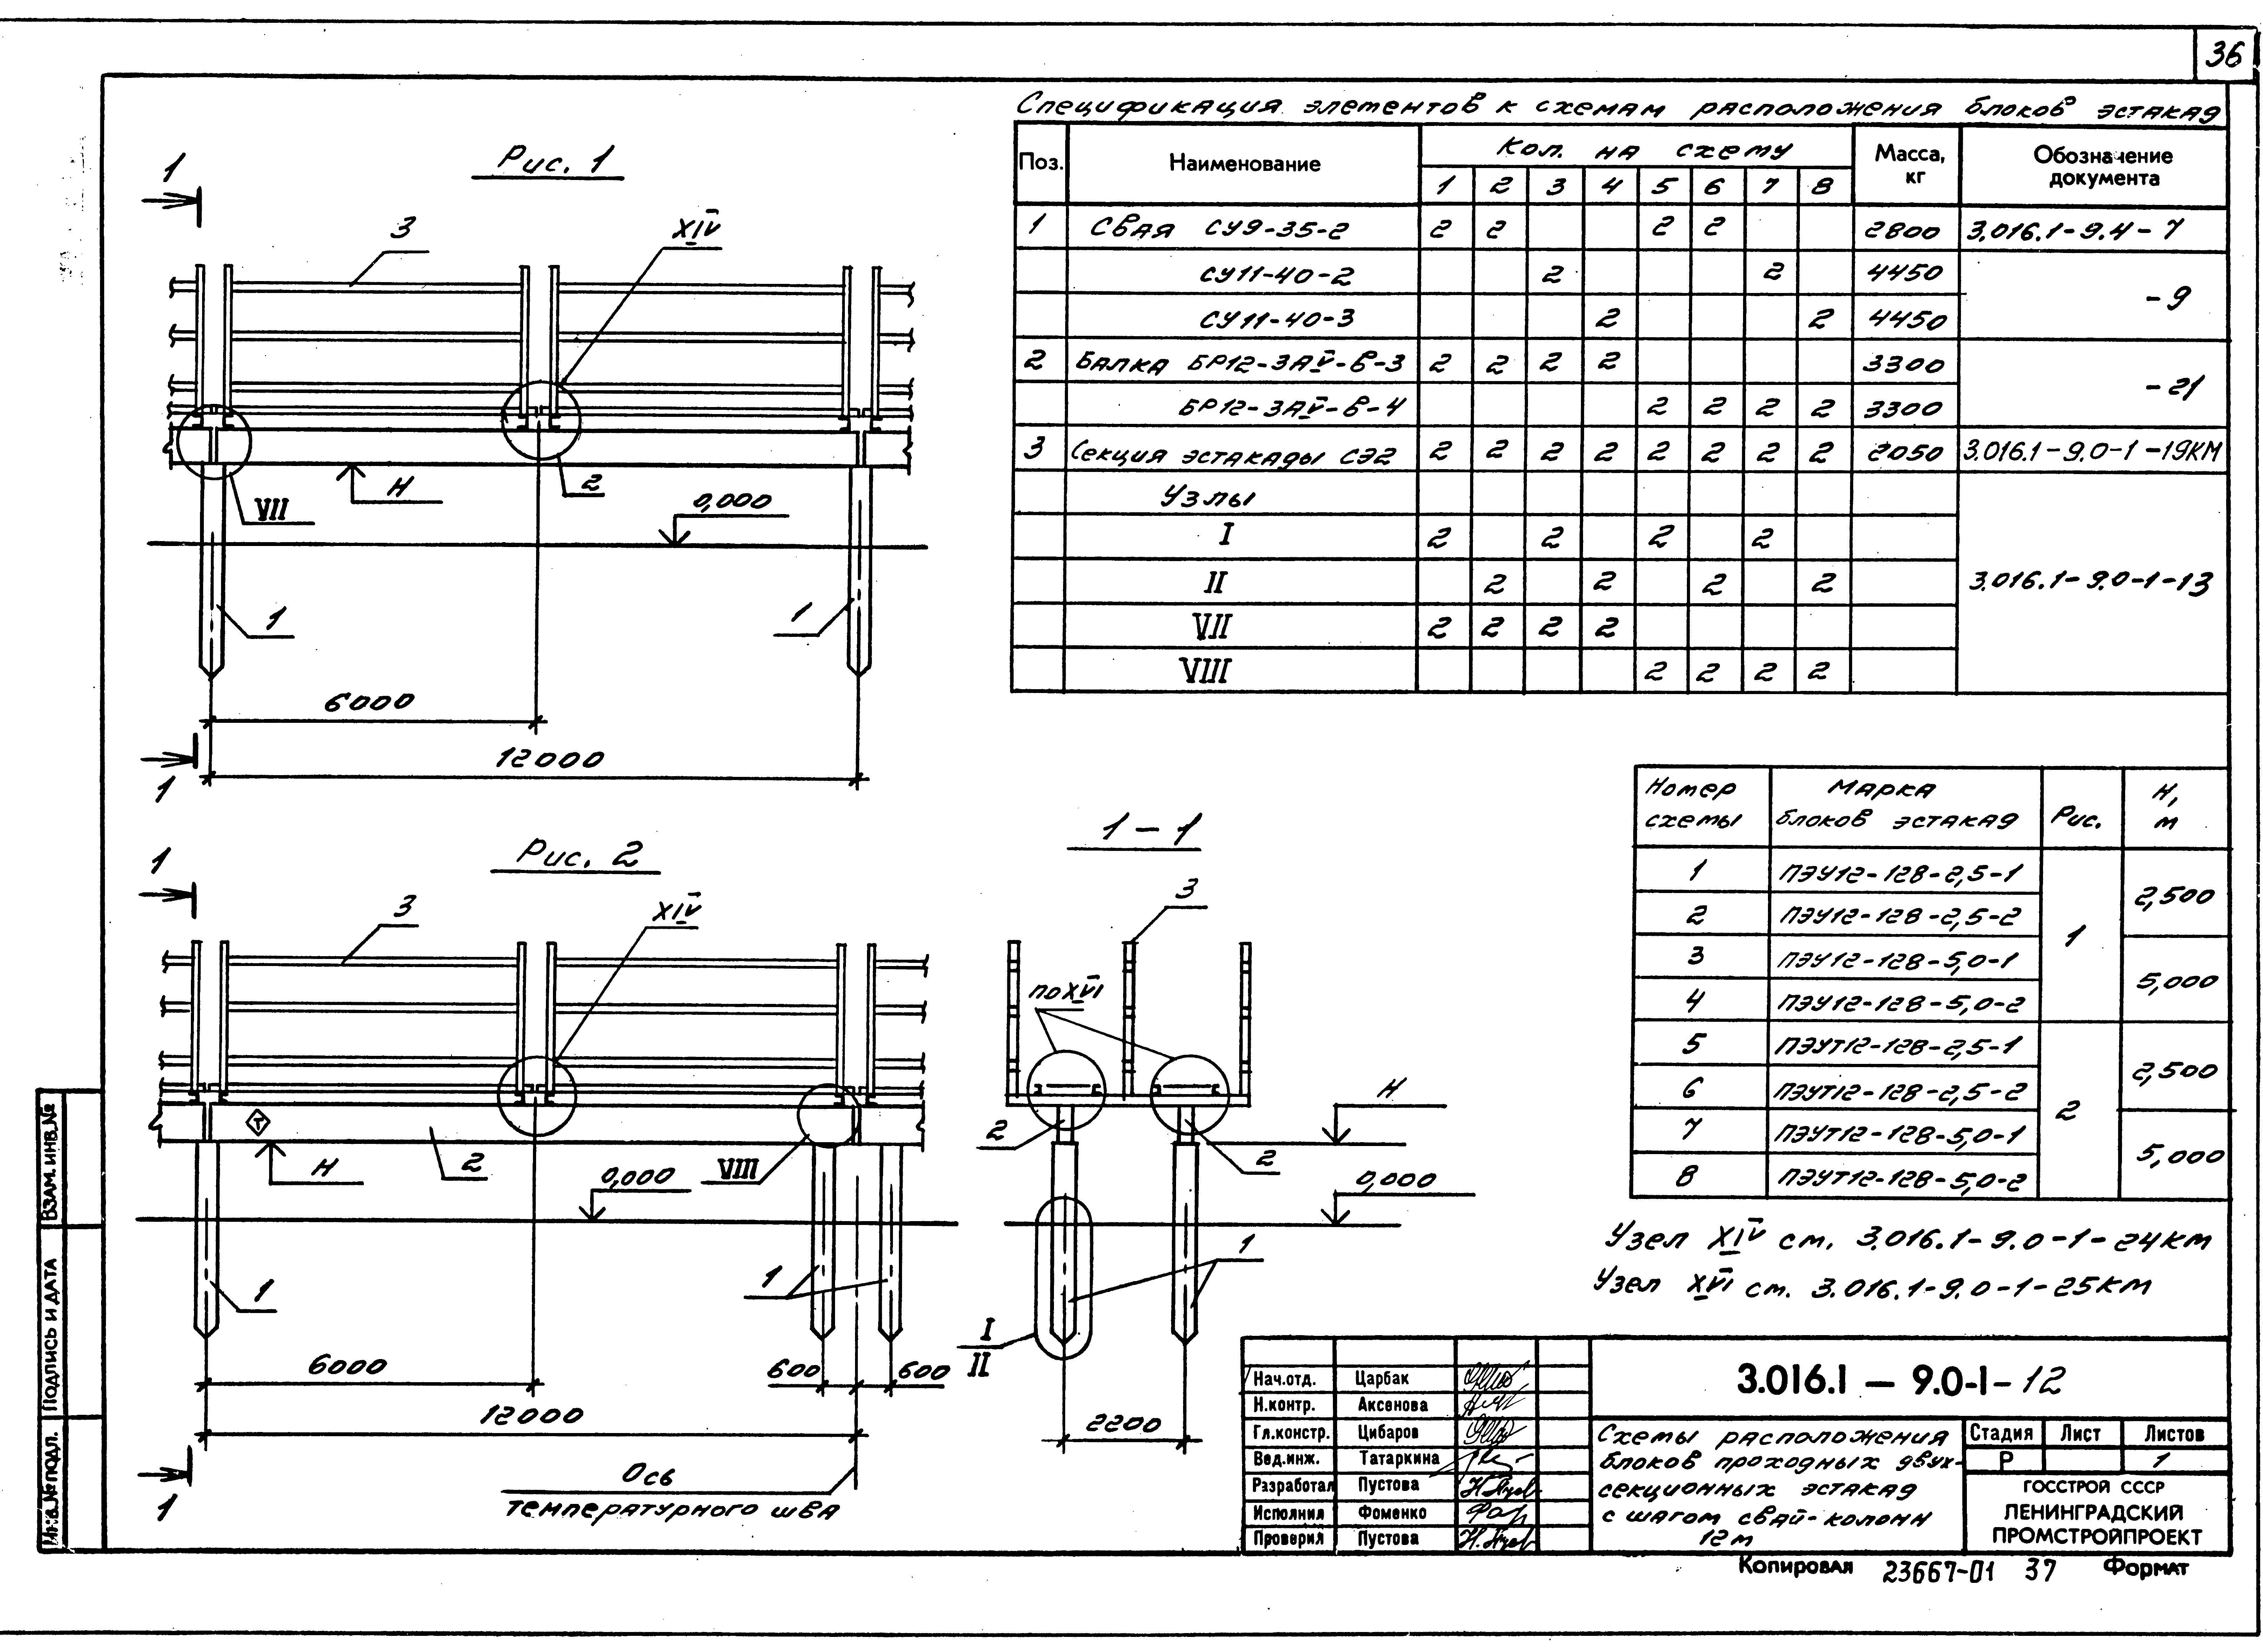 36
Спецификация элементов к схемам расположения блоков эстакад
Поз. Наименование Кол. на схему Масса, кг Обозначение документа
1 2 3 4 5 6 7 8
1 Свая СУ9-35-2 2 2 2 2 2800 3.016.1-9.4-7
СУ11-40-2 2 2 4450 -9
СУ11-40-3 2 2 4450
2 Балка БР12-3АIV-в-3 2 2 2 2 3300 -21
БР12-3АIV-в-4 2 2 2 2 3300
3 Секция эстакады СЭ2 2 2 2 2 2 2 2 2 2050 3.016.1-9.0-1-19КМ
Узлы
I 2 2 2 2 3.016.1-9.0-1-13
II 2 2 2 2
VII 2 2 2 2
VIII 2 2 2 2
Рис. 1
1
3
XIV
Н
2
VII
0,000
1
1
6000
12000
1
Рис. 2
1
3
XIV
Т
Н
2
0,000
VIII
1
1
6000
600
600
12000
Ось
температурного шва
1
1-1
3
по XVI
2
2
Н
0,000
1
I
II
2200
Номер схемы Марка блоков эстакад Рис. Н, м
1 ПЭУ12-128-2,5-1 1 2,500
2 ПЭУ12-128-2,5-2
3 ПЭУ12-128-5,0-1 5,000
4 ПЭУ12-128-5,0-2
5 ПЭУТ12-128-2,5-1 2 2,500
6 ПЭУТ12-128-2,5-2
7 ПЭУТ12-128-5,0-1 5,000
8 ПЭУТ12-128-5,0-2
Узел XIV см. 3.016.1-9.0-1-24КМ
Узел XVI см. 3.016.1-9.0-1-25КМ
Нач.отд. Царбак
Н.контр. Аксенова
Гл.констр. Цибаров
Вед.инж. Татаркина
Разработал Пустова
Исполнил Фоменко
Проверил Пустова
3.016.1 — 9.0-1-12
Схемы расположения
блоков проходных двух-
секционных эстакад
с шагом свай-колонн
12м
Стадия Лист Листов
Р 1
ГОССТРОЙ СССР
ЛЕНИНГРАДСКИЙ
ПРОМСТРОЙПРОЕКТ
Копировал 23667-01 37 Формат
Взам. инв. №
Подпись и дата
Инв. № подл.